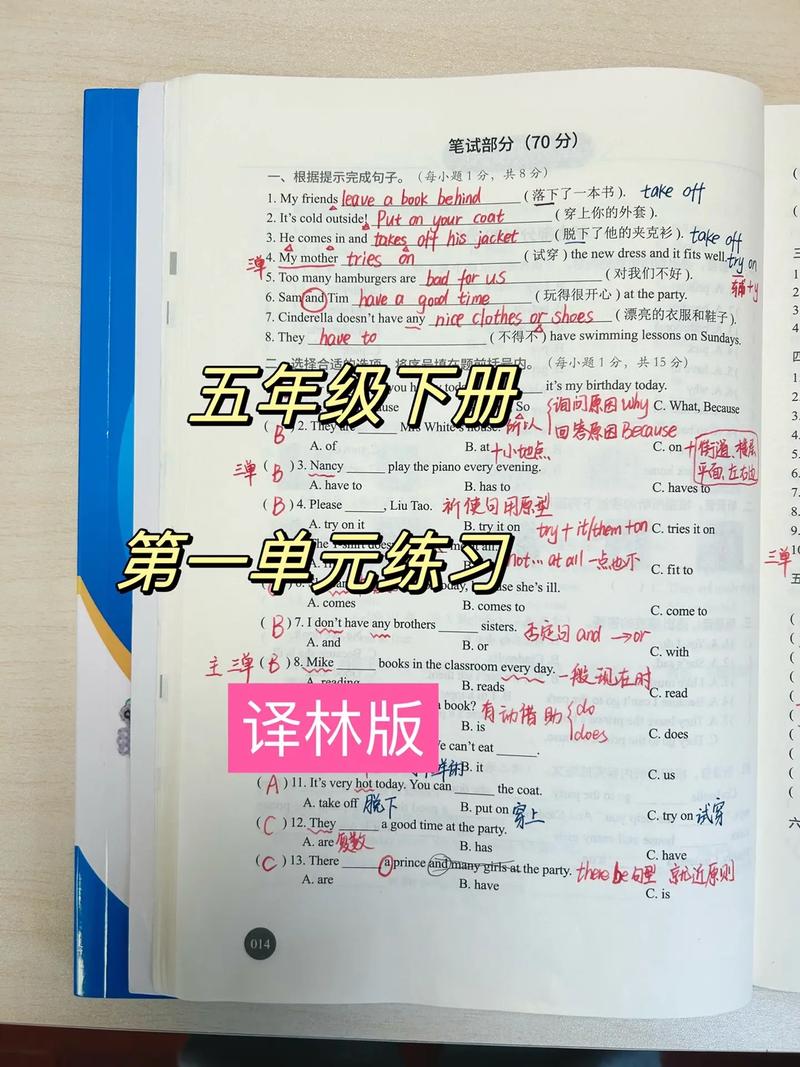 笔试部分（70 分）
一、根据提示完成句子。（每小题 1 分，共 8 分）
1. My friends leave a book behind (落下了一本书). take off
2. It's cold outside! Put on your coat (穿上你的外套).
3. He comes in and takes off his jacket (脱下了他的夹克衫). take off
三单 4. My mother tries on (试穿) the new dress and it fits well. try on
辅+y
5. Too many hamburgers are bad for us (对我们不好).
6. Sam and Tim have a good time (玩得很开心) at the party.
7. Cinderella doesn't have any nice clothes or shoes (漂亮的衣服和鞋子).
8. They have to (不得不) have swimming lessons on Sundays.
二、选择合适的选项，将序号填在题前括号内。（每小题 1 分，共 15 分）
it's my birthday today.
五年级下册
So 所以 询问原因 Why C. What, Because
回答原因 Because
(B) 2. They are Mrs White's house.
A. of B. at +小地点 C. on + 街道、楼层
平面、左右边
三单 (B) 3. Nancy play the piano every evening.
A. have to B. has to C. haves to
(B) 4. Please, Liu Tao. 祈使句用原型
A. try on it B. try it on try + it/them + on C. tries it on
第一单元练习
not... at all 一点也不
C. fit to
today, she's ill.
A. comes B. comes to C. come to
(B) 7. I don't have any brothers sisters. 否定句 and → or
A. and B. or C. with
主三单 (B) 8. Mike books in the classroom every day. 一般现在时
A. reading B. reads C. read
译林版
a book? 有动借助 do
does
B. is C. does
We can't eat.
B. it C. us
(A) 11. It's very hot today. You can the coat.
A. take off 脱下 B. put on 穿上 C. try on 试穿
(C) 12. They a good time at the party.
A. are 复数 B. has C. have
(C) 13. There a prince and many girls at the party. there be 句型 就近原则
A. are B. have C. is
014
三单